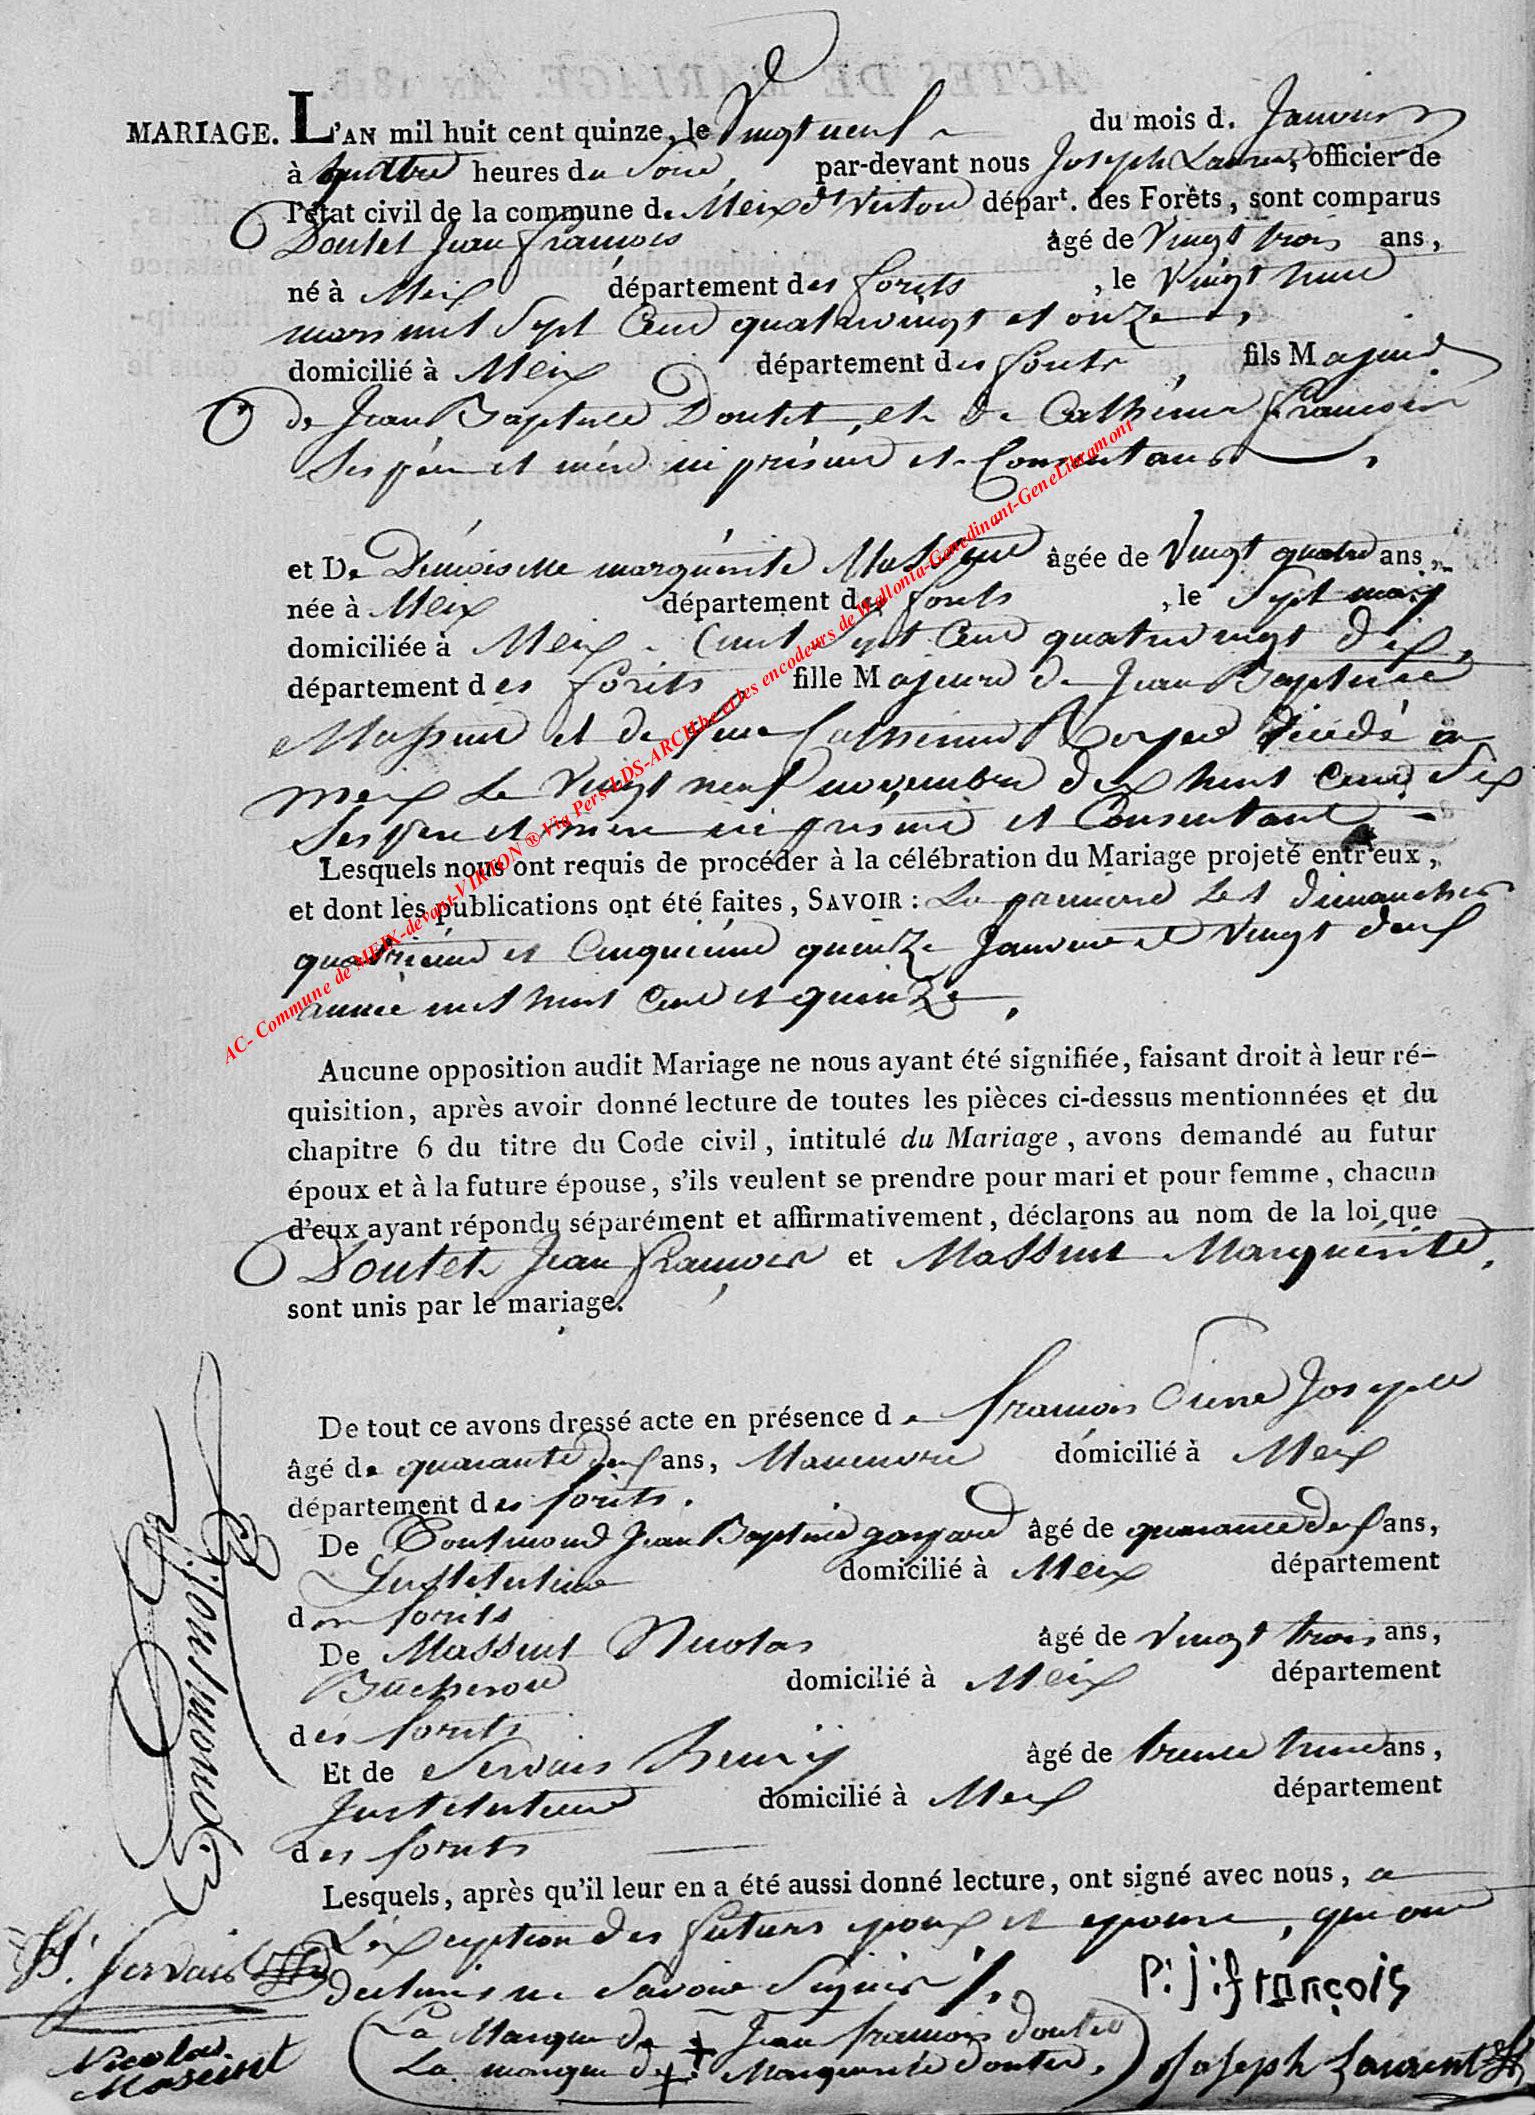 MARIAGE. L'AN mil huit cent quinze, le Vingt neuf du mois d. Janvier
à quattre heures du Soire, par-devant nous Joseph Laurent, officier de
l'état civil de la commune de Meix dt Virton départ. des Forêts, sont comparus
Doutet Jean François âgé de Vingt trois ans,
né à Meix département des forêts, le Vingt
mars mil Sept Cent quatrevingt et onze,
domicilié à Meix département des forêts, fils Majeur
de Jean Baptiste Doutet, et de Cathérine François
Ses père et mère ici présent et Consentans,
et De Demoiselle marguérite Massint âgée de Vingt quatre ans,
née à Meix département des forêts, le Sept mars
domiciliée à Meix. mil Sept Cent quatre vingt dix,
département des forêts fille Majeure de Jean Baptiste
Massint et de feue Cathérine décédé à
meix le Vingt neuf novembre dix huit Cent Six
Ses père et mère ici présent et Consentant
Lesquels nous ont requis de procéder à la célébration du Mariage projeté entr'eux,
et dont les publications ont été faites, SAVOIR: La premiere Les dimanches
quatrième et Cinquième quinze Janvier et Vingt deux
année mil huit Cent et quinze,
Aucune opposition audit Mariage ne nous ayant été signifiée, faisant droit à leur ré-
quisition, après avoir donné lecture de toutes les pièces ci-dessus mentionnées et du
chapitre 6 du titre du Code civil, intitulé du Mariage, avons demandé au futur
époux et à la future épouse, s'ils veulent se prendre pour mari et pour femme, chacun
d'eux ayant répondu séparément et affirmativement, déclarons au nom de la loi que
Doutet Jean François et Massint Marguérite,
sont unis par le mariage.
De tout ce avons dressé acte en présence de François Pierre Joseph
âgé de quarante deux ans, Manuvre domicilié à Meix
département des forêts.
De Goutmond Jean Baptiste gaspard âgé de quarante deux ans,
Instituteur domicilié à Meix département
des forêts
De Massint Nicolas âgé de Vingt trois ans,
Bucheron domicilié à Meix département
des forêts
Et de Servais Henry âgé de trente ans,
Instituteur domicilié à Meix département
des forêts
Lesquels, après qu'il leur en a été aussi donné lecture, ont signé avec nous, a
L'exception des futurs epoux et epouse, qui ont
declarés ne Savoir Signer /.
H. Servais
P: j: françois
La Marque de + Jean François doutet
La marque de + Marguerite doutet.
Nicolas
Masint
Joseph Laurent
AC- Commune de MEIX-devant-VIRTON ® Via Pers-LDS-ARCH.be et les encodeurs de Wallonia-Genedinant-GeneLibramont